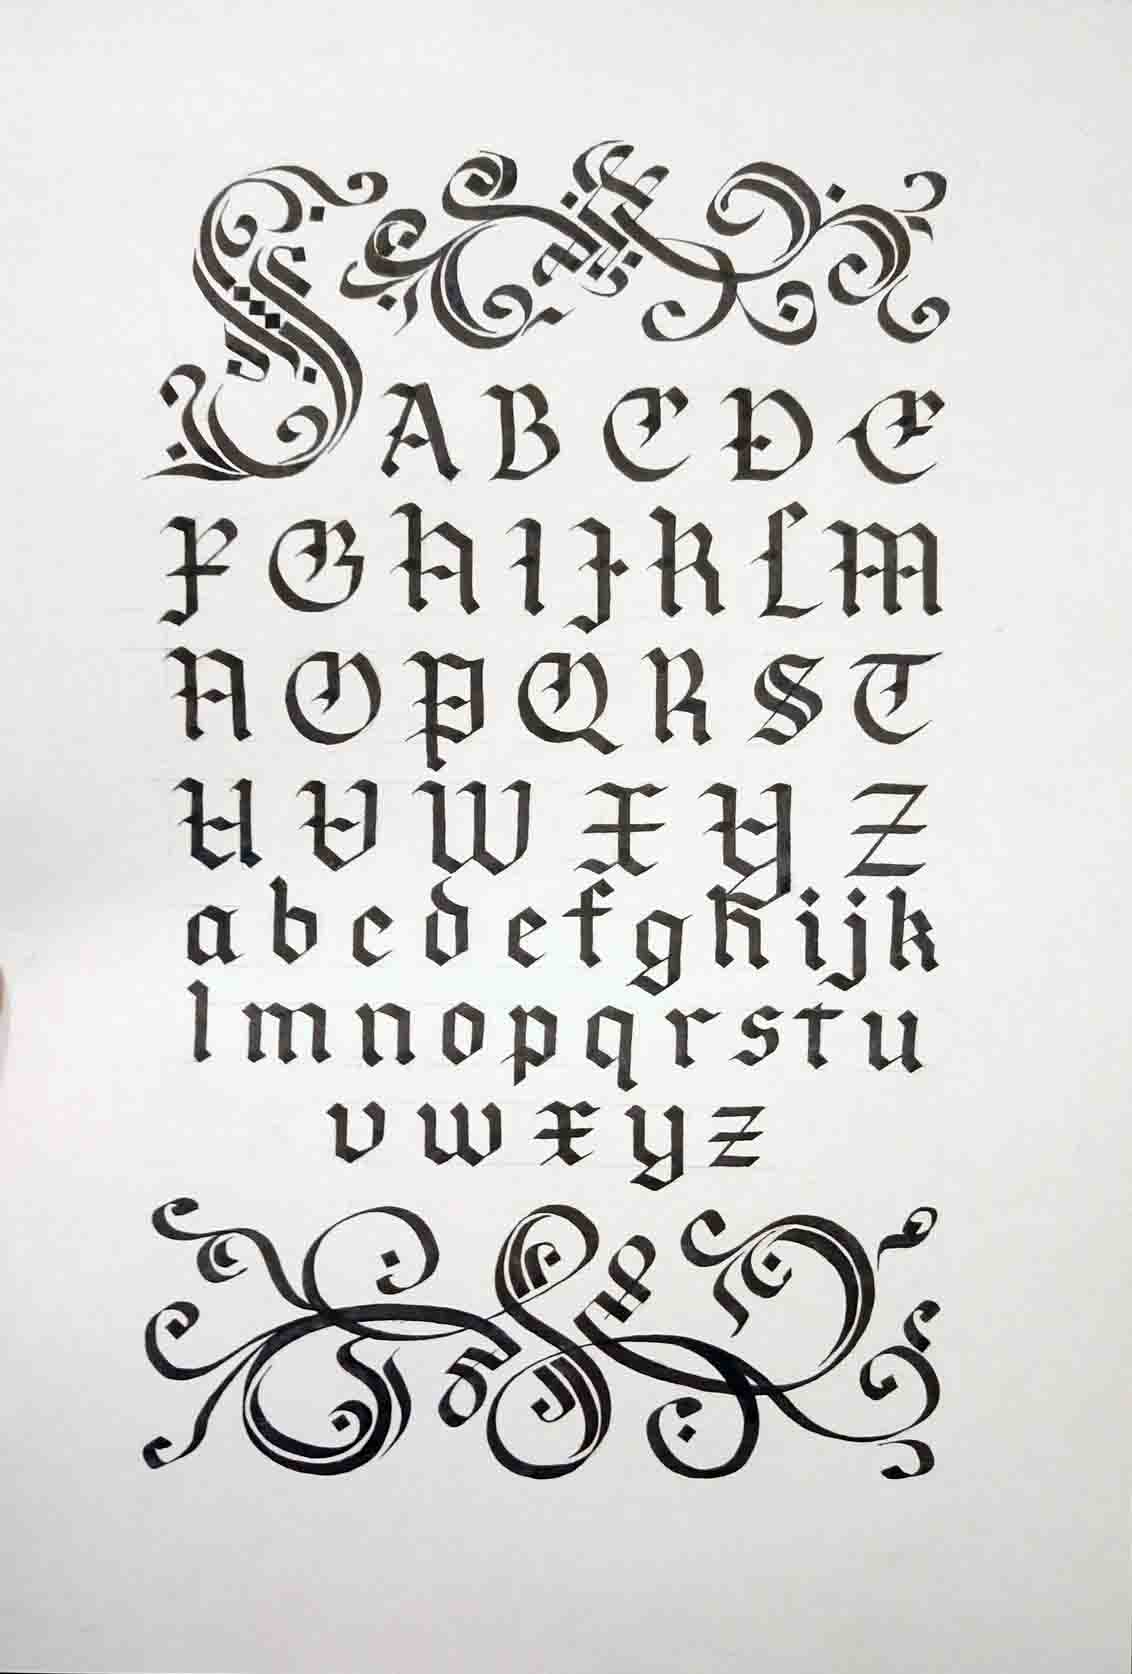 S A B C D E
F G H I J K L M
N O P Q R S T
U V W X Y Z
a b c d e f g h i j k
l m n o p q r s t u
v w x y z